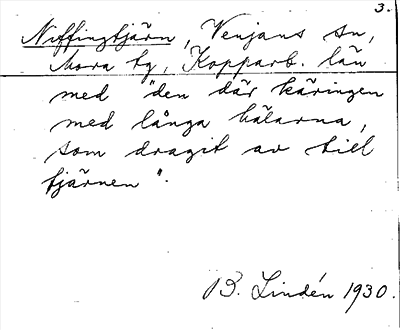 3.
Niffingtjärn, Venjans sn,
Mora tg, Kopparb. län
med "den där käringen
med långa hälarna,
som dragit av till
tjärnen".
B. Lindén 1930.